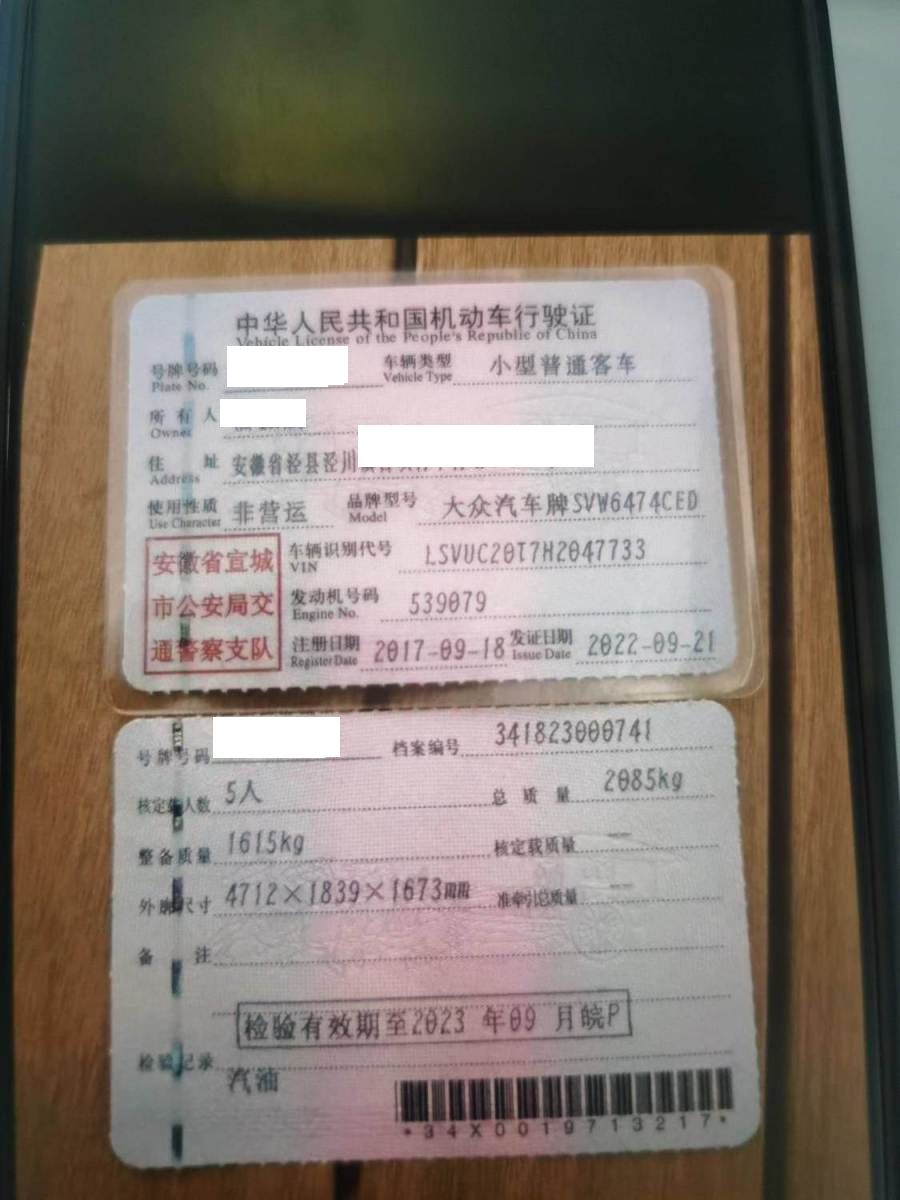 中华人民共和国机动车行驶证
Vehicle License of the People's Republic of China
号牌号码 车辆类型 小型普通客车
Plate No. Vehicle Type
所有人
Owner
住址 安徽省泾县泾川
Address
使用性质 非营运 品牌型号 大众汽车牌SVW6474CED
Use Character Model
安徽省宣城
市公安局交
通警察支队
车辆识别代号 LSVUC20T7H2047733
VIN
发动机号码 539079
Engine No.
注册日期 2017-09-18 发证日期 2022-09-21
Register Date Issue Date
号牌号码 档案编号 341823000741
核定载人数 5人 总质量 2085kg
整备质量 1615kg 核定载质量 --
外廓尺寸 4712×1839×1673mm 准牵引总质量 --
备注
检验有效期至2023年09月皖P
检验记录
汽油
*34X0019713217*